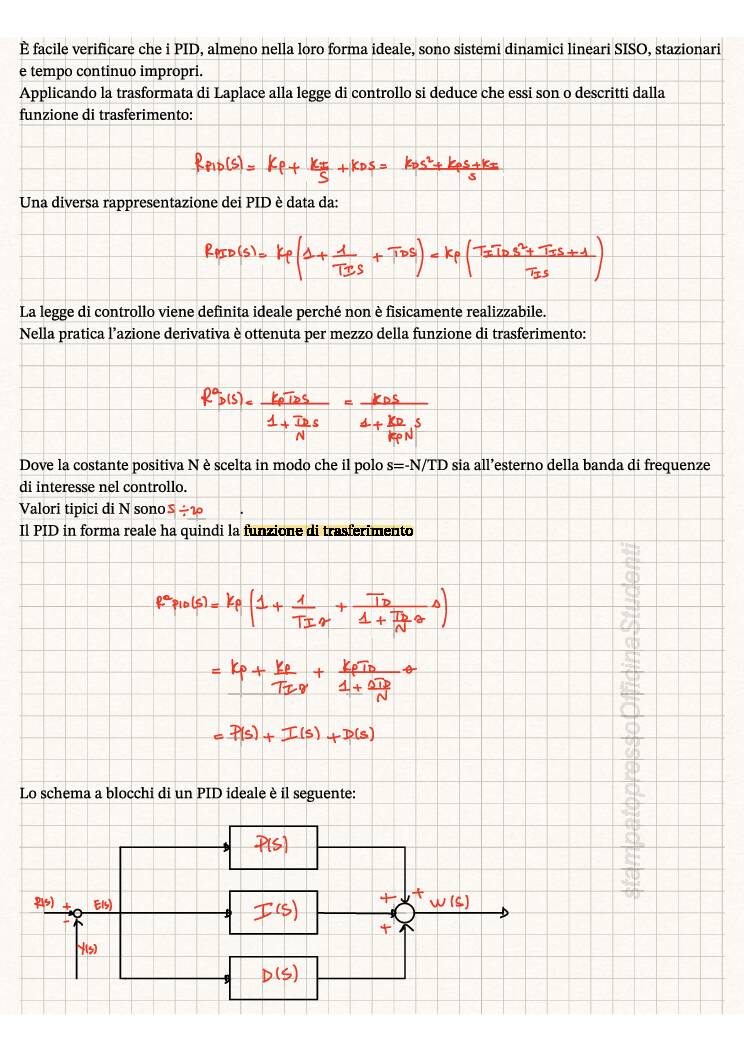 È facile verificare che i PID, almeno nella loro forma ideale, sono sistemi dinamici lineari SISO, stazionari
e tempo continuo impropri.
Applicando la trasformata di Laplace alla legge di controllo si deduce che essi son o descritti dalla
funzione di trasferimento:
R_PID(s) = Kp + KI/s + KDs = (KDs² + Kps + KI)/s
Una diversa rappresentazione dei PID è data da:
R_PID(s) = Kp (1 + 1/(TIs) + TDs) = Kp ((TITDs² + TIs + 1)/(TIs))
La legge di controllo viene definita ideale perché non è fisicamente realizzabile.
Nella pratica l'azione derivativa è ottenuta per mezzo della funzione di trasferimento:
Rᵃ_D(s) = KpTDs/(1 + (TD/N)s) = KDs/(1 + (KD/(KpN))s)
Dove la costante positiva N è scelta in modo che il polo s=-N/TD sia all'esterno della banda di frequenze
di interesse nel controllo.
Valori tipici di N sono 5 ÷ 20 .
Il PID in forma reale ha quindi la funzione di trasferimento
Rᵃ_PID(s) = Kp (1 + 1/(TIs) + (TD/(1 + (TD/N)s)) s)
= Kp + Kp/(TIs) + (KpTD/(1 + sTD/N)) s
= P(s) + I(s) + D(s)
Lo schema a blocchi di un PID ideale è il seguente:
P(s)
R(s) + E(s) I(s) + + W(s)
- +
Y(s)
D(s)
stampatopressoOfficinaStudenti